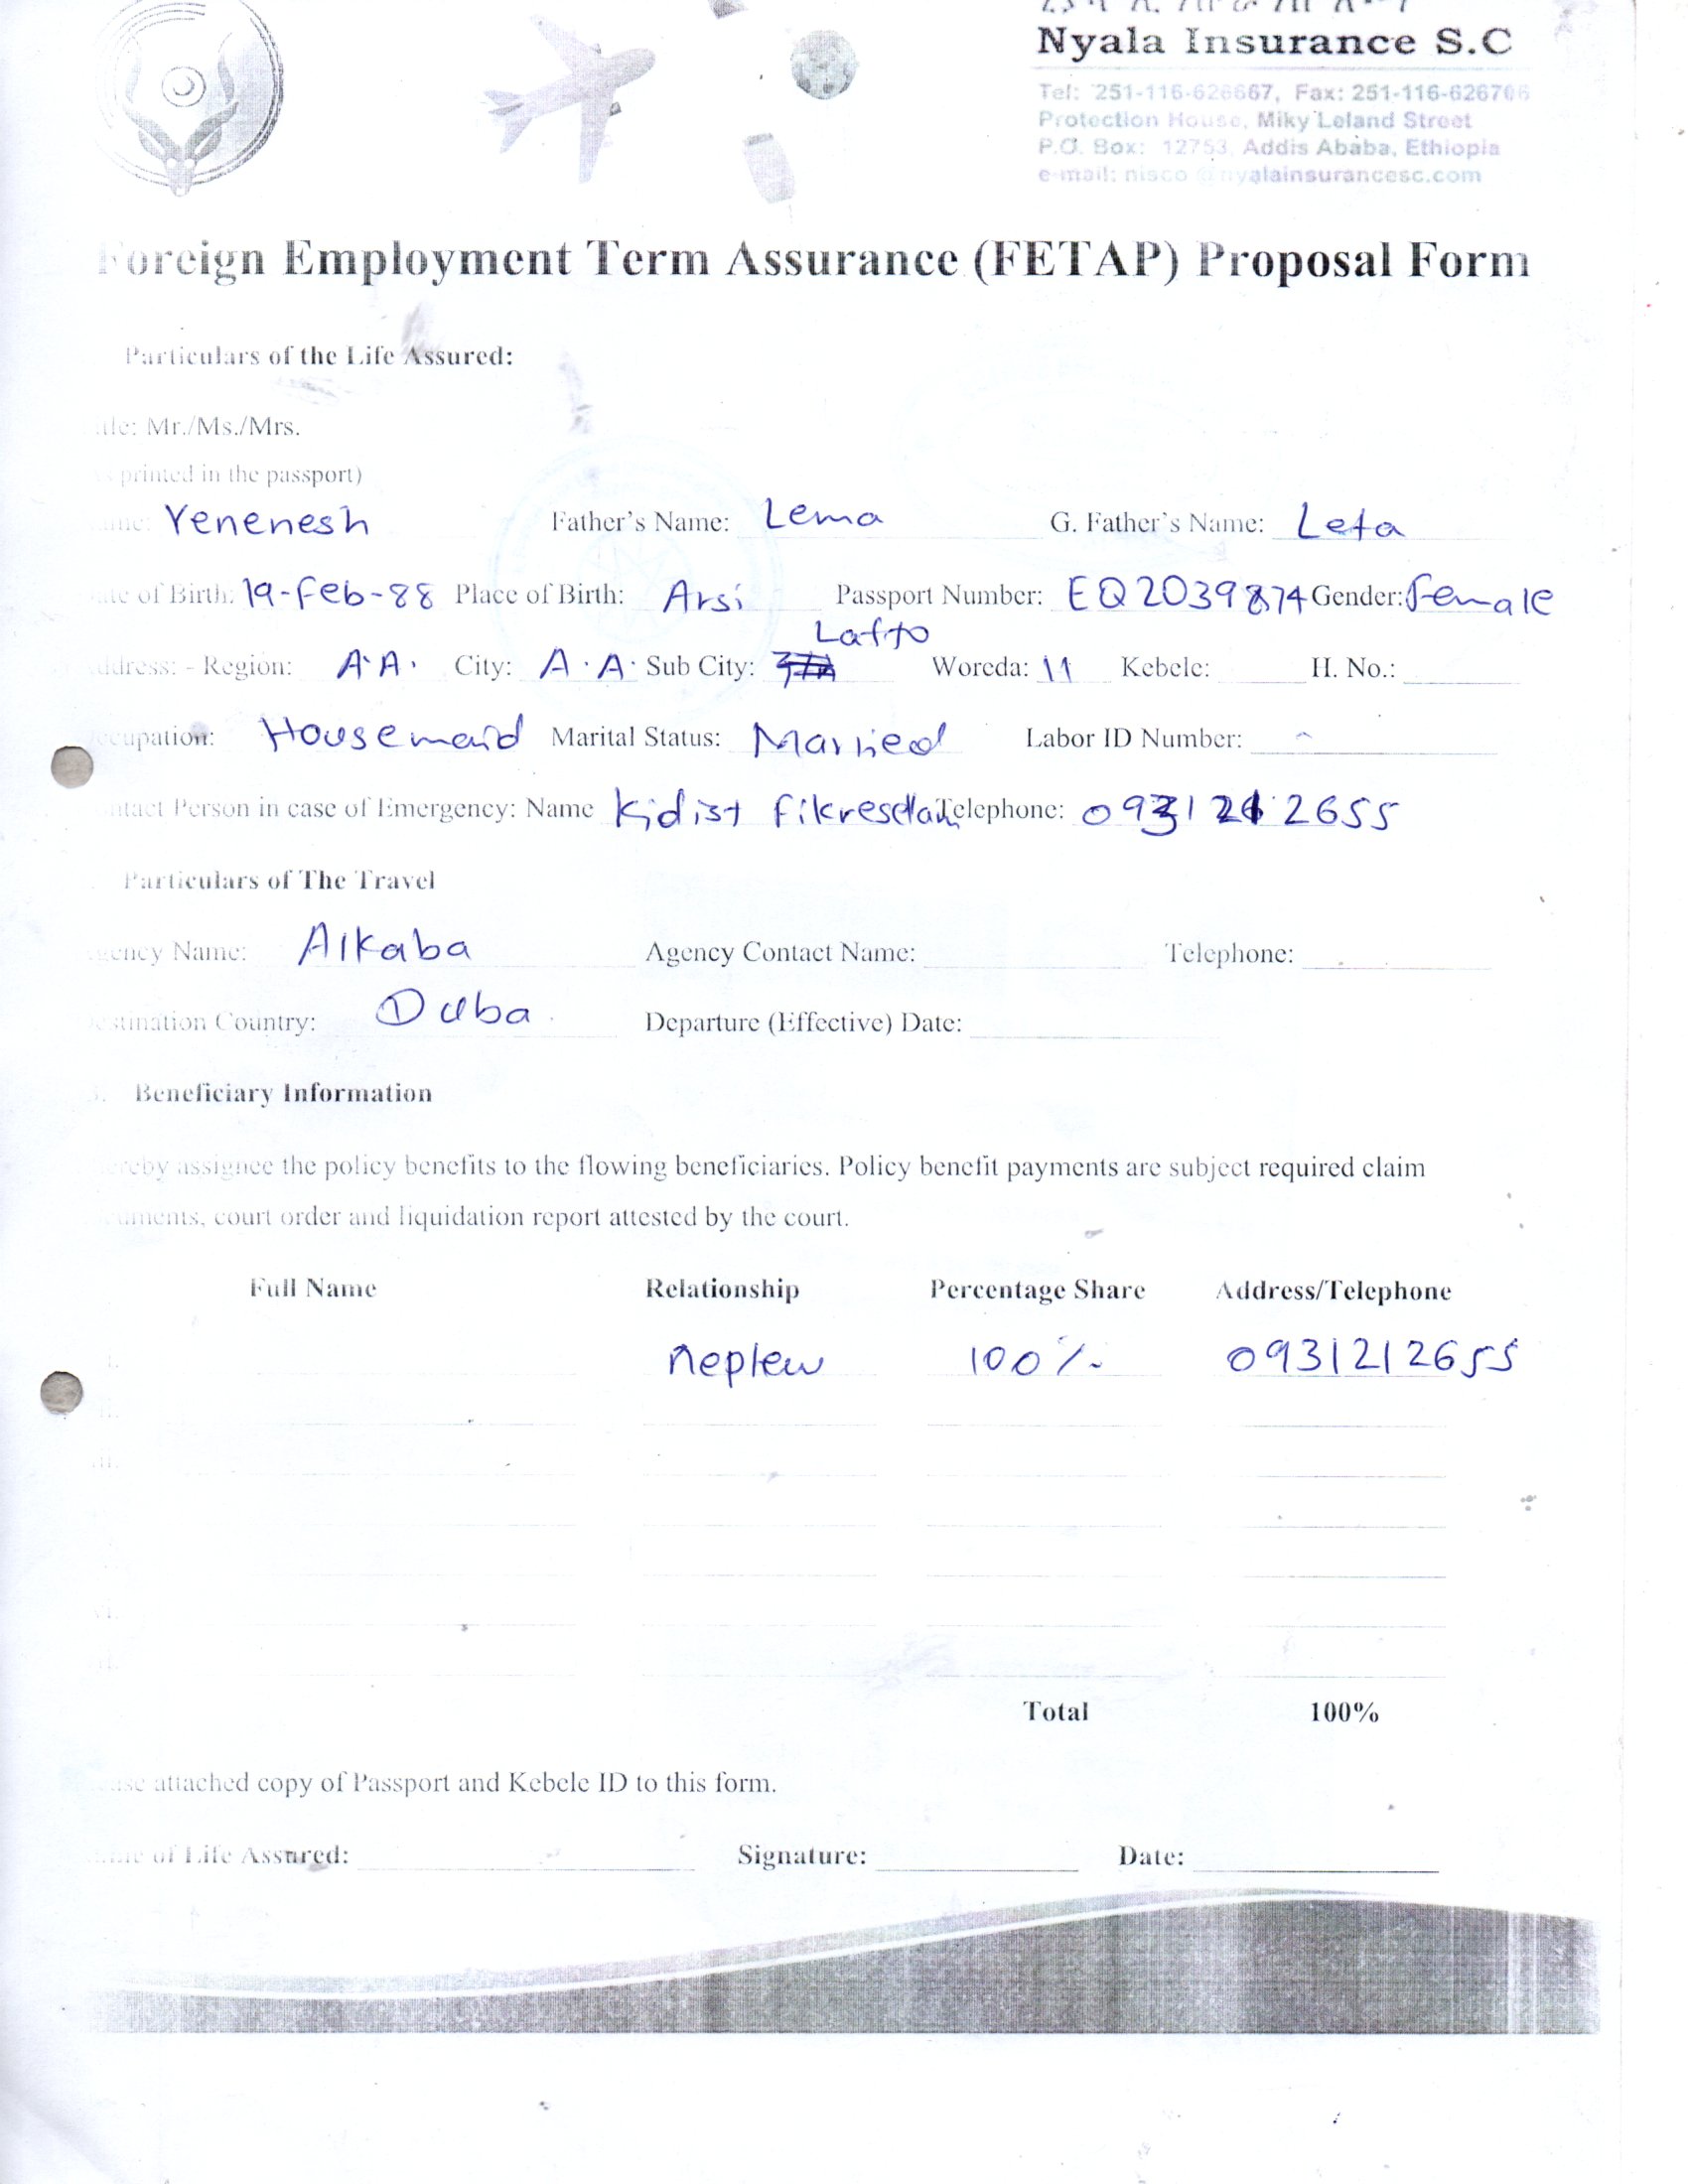 Nyala Insurance S.C
Tel: 251-116-626667, Fax: 251-116-626706
Protection House, Miky Leland Street
P.O. Box: 12753, Addis Ababa, Ethiopia
e-mail: nisco @nyalainsurancesc.com
Foreign Employment Term Assurance (FETAP) Proposal Form
Particulars of the Life Assured:
Mr./Ms./Mrs.
printed in the passport)
Yenenesh Father's Name: Lema G. Father's Name: Leta
of Birth: 19-Feb-88 Place of Birth: Arsi Passport Number: EQ2039874 Gender: Female
Lafto
- Region: A.A. City: A.A. Sub City: Woreda: 11 Kebele: H. No.:
Housemaid Marital Status: Married Labor ID Number:
Person in case of Emergency: Name Kidist Telephone: 0931212655
Particulars of The Travel
Name: Alkaba Agency Contact Name: Telephone:
Country: Duba Departure (Effective) Date:
Beneficiary Information
assignee the policy benefits to the flowing beneficiaries. Policy benefit payments are subject required claim
court order and liquidation report attested by the court.
Full Name Relationship Percentage Share Address/Telephone
neplew 100% 0931212655
Total 100%
attached copy of Passport and Kebele ID to this form.
of Life Assured: Signature: Date: